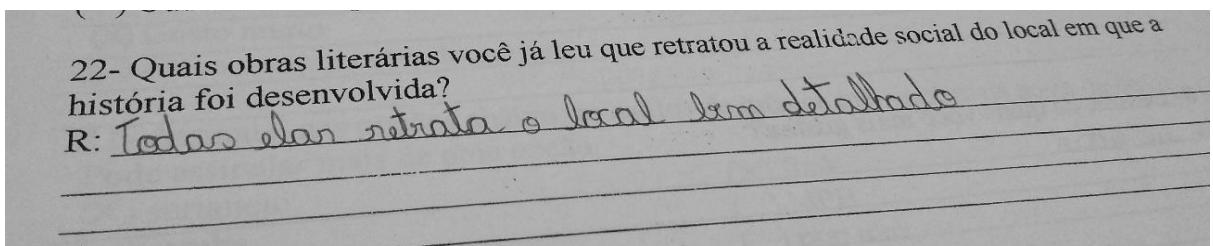 22- Quais obras literárias você já leu que retratou a realidade social do local em que a
história foi desenvolvida?
R: Todas elas retrata o local bem detalhado